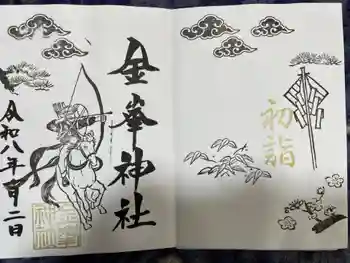 初詣
金峯神社
令和八年一月二日